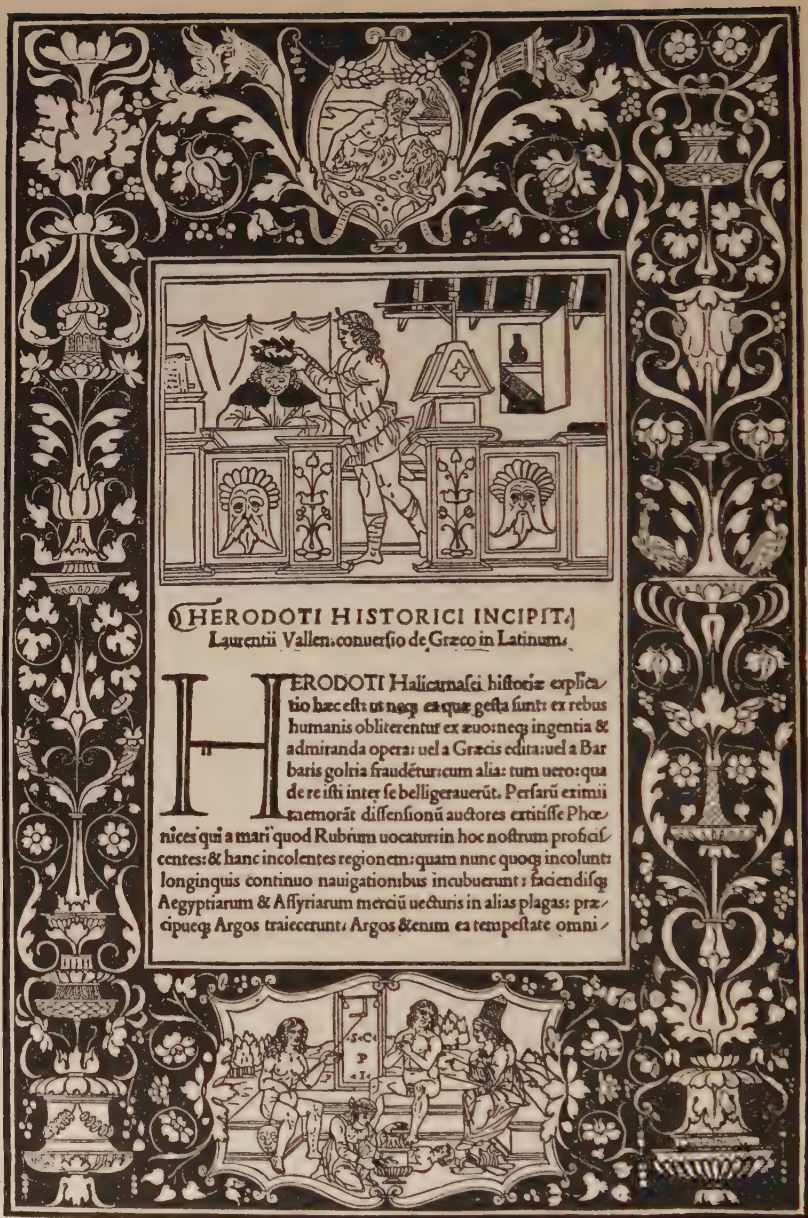 HERODOTI HISTORICI INCIPIT.
Laurentii Vallen. conuersio de Græco in Latinum.
HERODOTI Halicarnasei historiæ explica/
tio hæc est: ut neq; ea quæ gesta sunt: ex rebus
humanis obliterentur ex æuo: neq; ingentia &
admiranda opera: uel a Græcis edita: uel a Bar
baris golria fraudētur: cum alia: tum uero: qua
de re isti inter se belligerauerūt. Persarū eximii
memorāt dissensionū auctores extitisse Phœ
nices qui a mari quod Rubrum uocatur: in hoc nostrum proficis/
centes: & hanc incolentes regionem: quam nunc quoq; incolunt:
longinquis continuo nauigationibus incubuerunt: faciendisq;
Aegyptiarum & Assyriarum merciū uecturis in alias plagas: præ/
cipueq; Argos traiecerunt. Argos &enim ea tempestate omni/
.S.C.
P
.I.